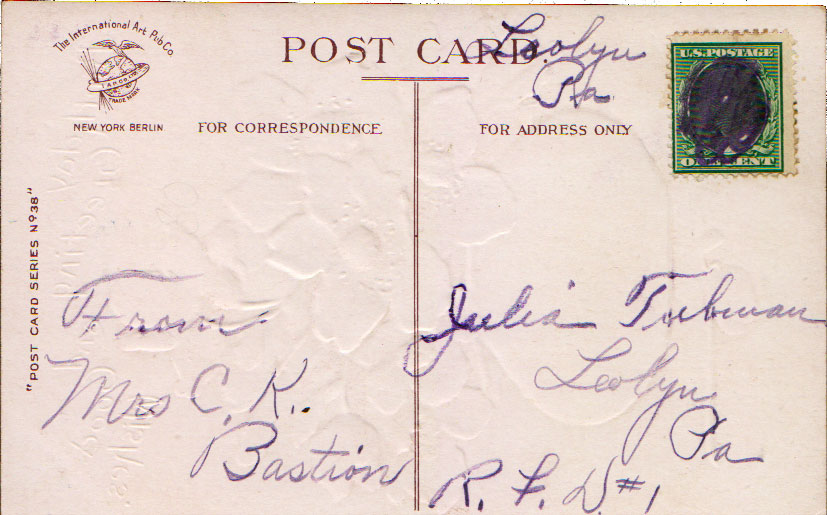 The International Art Pub Co.
TRADE MARK
NEW YORK BERLIN
POST CARD.
FOR CORRESPONDENCE
FOR ADDRESS ONLY
Leolyn
Pa
U.S. POSTAGE
ONE CENT
"POST CARD SERIES Nº38"
From
Mrs C. K.
Bastion
Julia Tubman
Leolyn
Pa
R. F. D #1